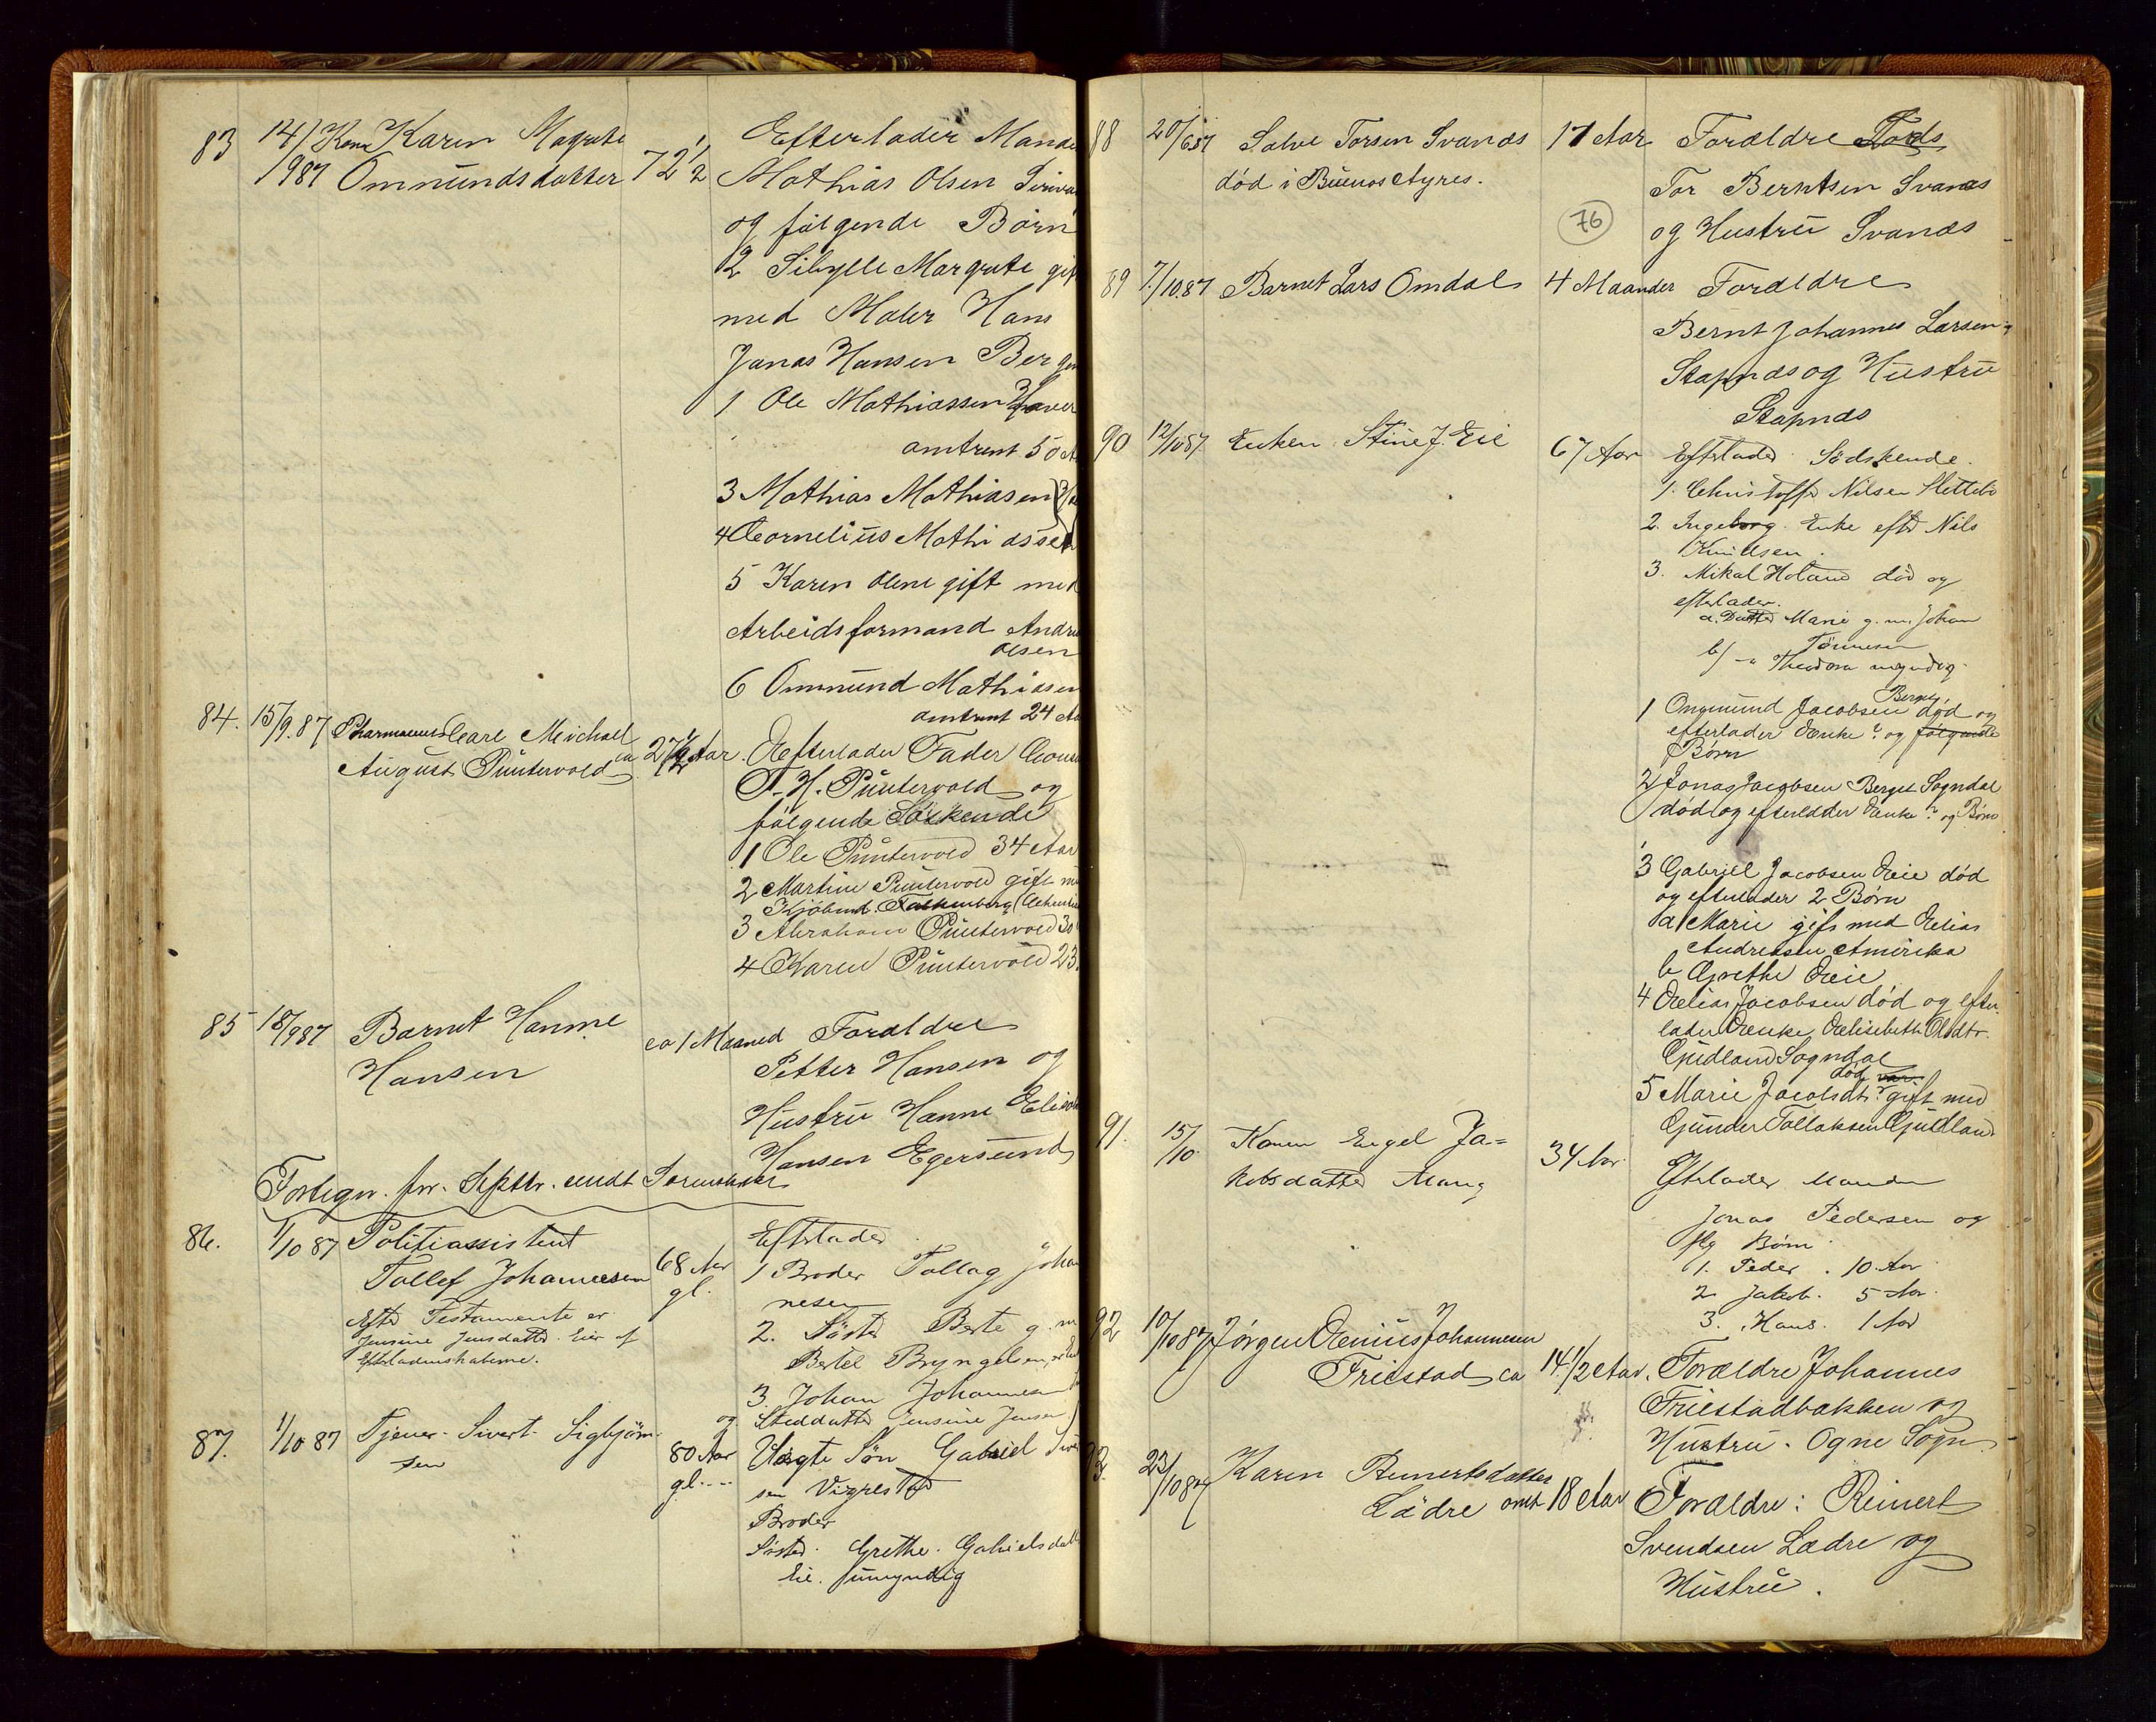 83 14/ Kone Karen Magrete 1/2 Efterlader Mand
1987 Ommundsdatter 72 Mathias Olsen
og følgende Børn
2 Sibylle Margrete gift
med Maler Hans
Jonas Hansen Bergen
1 Ole Mathiassen
omtrent 50
3 Mathias Mathiasen
4 Cornelius Mathiassen
5 Karen Olene gift med
Arbeidsformand Andreas
Olsen
6 Ommund Mathiasen
omtrent 24 Aar
84. 15/9.87 Pharmaceut Carl Meichael
August Püntervold ca 27 1/2 Aar. Efterlader Fader Consul
F. H. Püntervold og
følgende Søskende
1 Ole Püntervold 34 Aar
2 Martine Püntervold gift m
Kjøbmd. Falkenberg
3 Abraham Püntervold 30
4 Karen Püntervold 23.
85 18/987 Barnet Hanne
Hansen ca 1 Maaned Forældre
Petter Hansen og
Hustru Hanne Elisab
Hansen Egersund
Fortegn. for Septbr. sendt Sorenskriver
86. 1/10 87 Politiassistent
Tollef Johannesen 68 Aar gl. Efterlader
1 Broder Tollag Johan
nesen
2. Søster Berte g. m
Bertel Bryngelsen,
3. Johan Johannesen
og Steddatter Jensine Jensen
Efter Testamente er
Jensine Jensdatter Eier af
Efterladenskaberne.
87. 1/10 87 Tjener Sivert Sigbjørn-
sen 80 Aar
gl. Uægte Søn Gabriel Siver
sen Vigrestad
Broder
Søster. Grethe. Gabrielsdatter
Eie. umyndig
88 20/687 Salve Torsen Svanæs 17 Aar Forældre Tords
død i Buenos Ayres. Tor Berntsen Svanæs
76 og Hustru Svanæs
89 7/10.87 Barnet Lars Omdal 4 Maander Forældre
Bernt Johannes Larsen
Stapnæs og Hustru
Stapnæs
90 12/1087 Enken Stine J. Eie 67 Aar Efterlader Sødskende.
1. Christoffer Nilsen Slettebø
2. Ingeborg Enke efter Nils
Knudsen.
3. Mikal Holand død og
efterlader.
a. Datter Marie g. m. Johan
Tønnesen
b/ -" Theodora myndig.
1 Ommund Jacobsen Berge, død og
efterlader Enke? og følgende
Børn
2 Jonas Jacobsen Berget Sogndal
død og efterlader Enke? og Børn
3 Gabriel Jacobsen Eeie død
og efterlader 2 Børn
a Marie gift med Elias
Andreasen Amerika
b Grethe Eeie
4 Elias Jacobsen død og efter-
lader Enke Elisebeth Olsdtr.
Gjudland Sogndal
død var
5 Marie Jacobsdtr? gift med
Gunder Tollaksen Gjudland
91. 15/10. Karen Engel Ja=
kobsdatter Mong 34 Aar Efterlader Manden
Jonas Pedersen og
flg Børn
1. Peder. 10 Aar
2 Jakob. 5 Aar.
3. Hans. 1 Aar
92 17/1087 Jørgen Enius Johannesen
Friestad ca 14 1/2 Aar. Forældre Johannes
Friestadbakken og
Hustru. Ogne Sogn.
93. 23/1087 Karen Reinertsdatter
Lædre omt 18 Aar Forældre: Reinert
Svendsen Lædre og
Hustru.